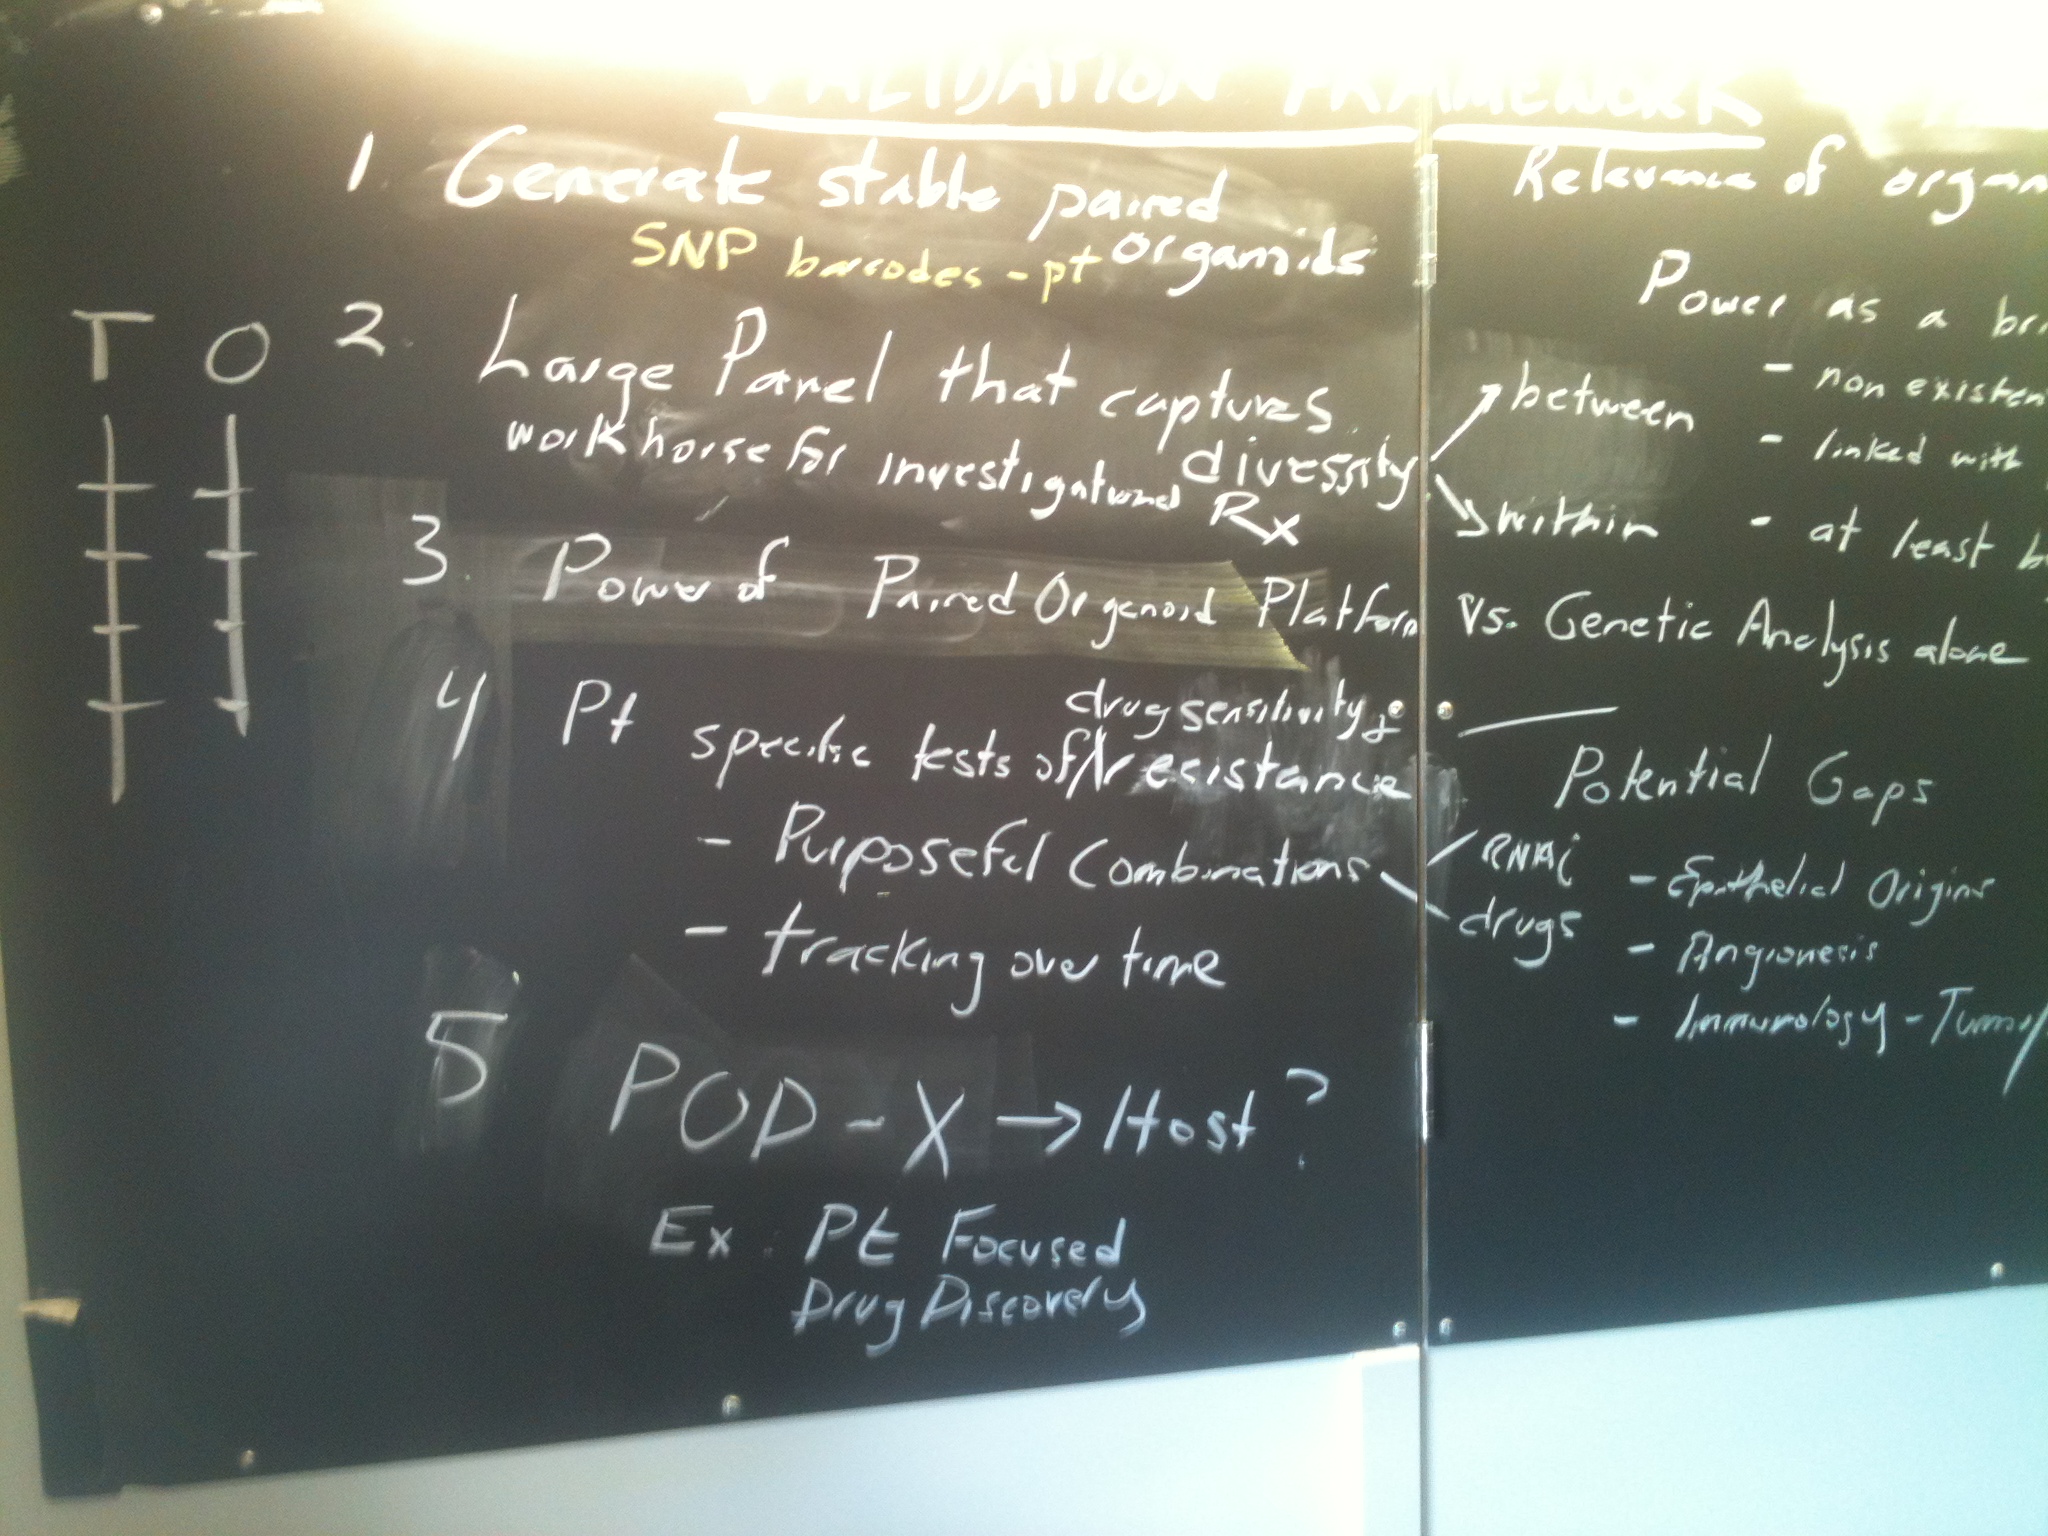 VALIDATION FRAMEWORK
1. Generate stable paired
organoids
SNP barcodes - pt
T O
2. Large Panel that captures
diversity
between
within
workhorse for investigational Rx
3. Power of Paired Organoid Platform vs. Genetic Analysis alone
4 Pt specific tests of drug sensitivity &
resistance
- Purposeful Combinations
RNAi
drugs
- tracking over time
5 POD - X → Host ?
Ex: Pt Focused
Drug Discovery
Relevance of organ
Power as a bri
- non existen
- linked with
- at least b
Potential Gaps
- Epithelial Origins
- Angionesis
- Immunology - Tumor